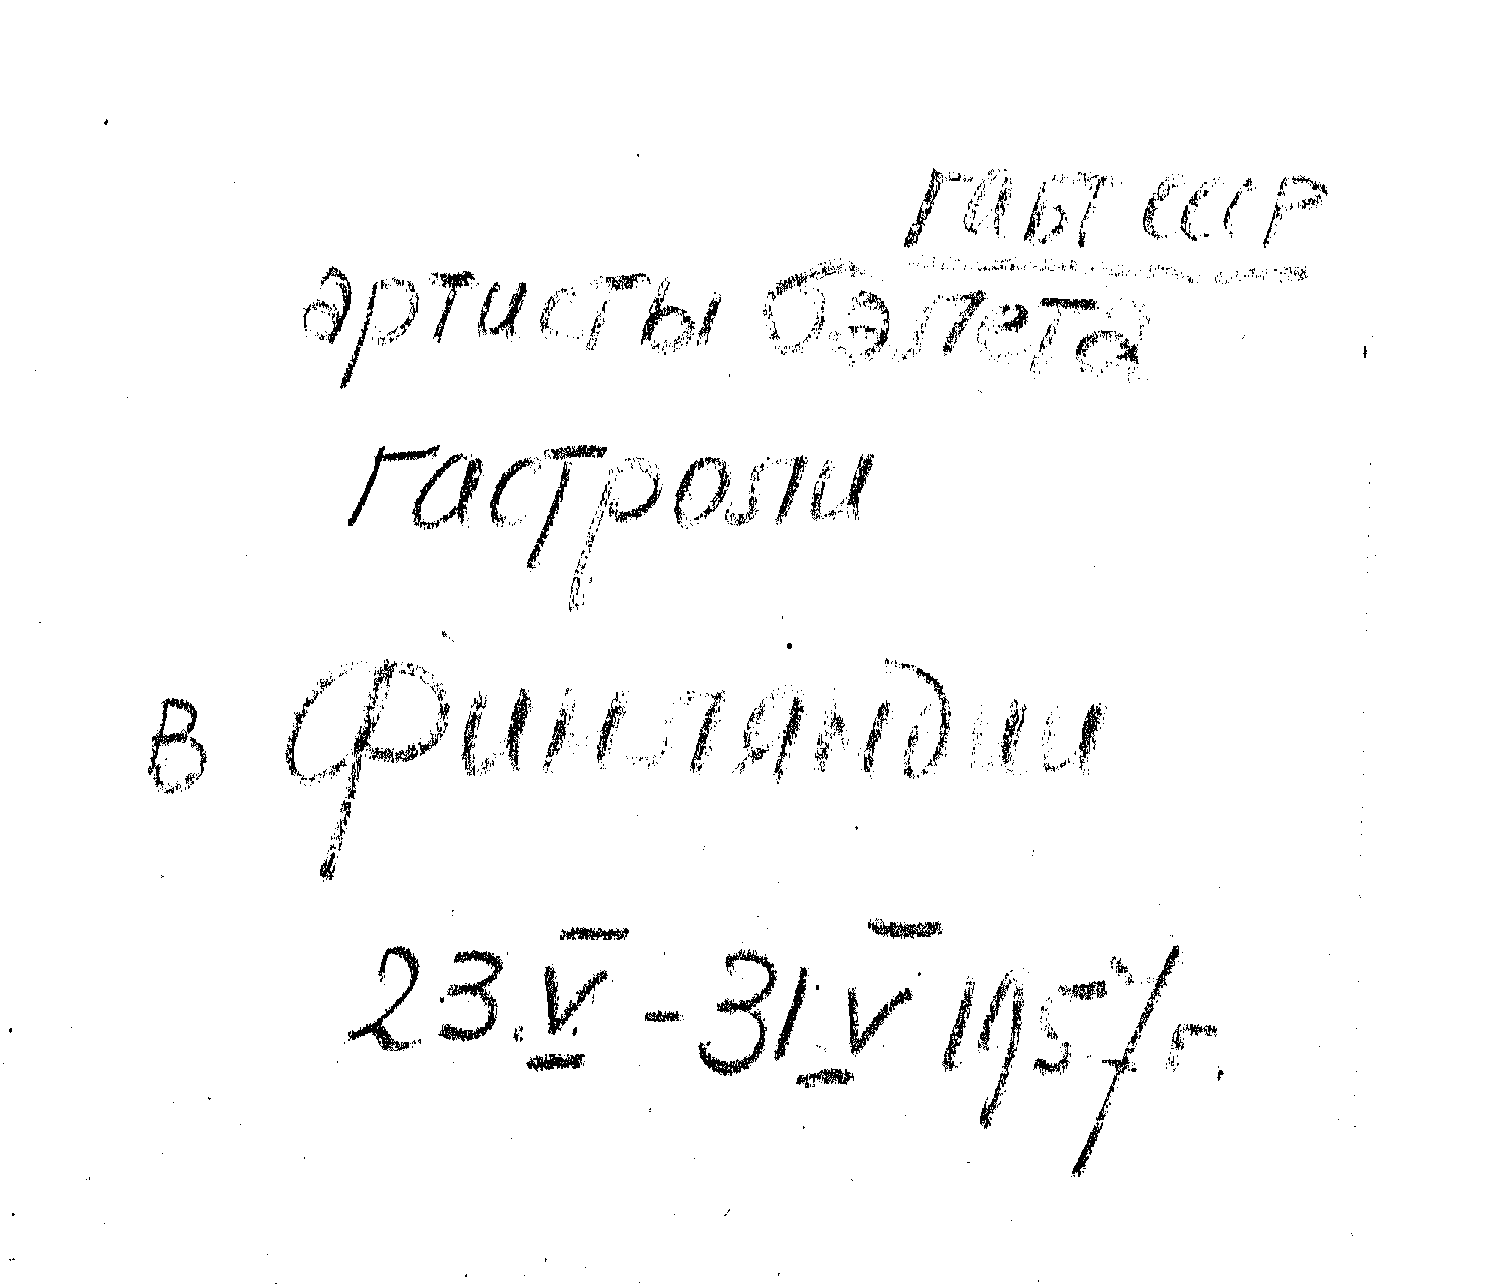 ГАБТ СССР
артисты балета
гастроли
в Финляндии
23.V - 31 V 1957 г.